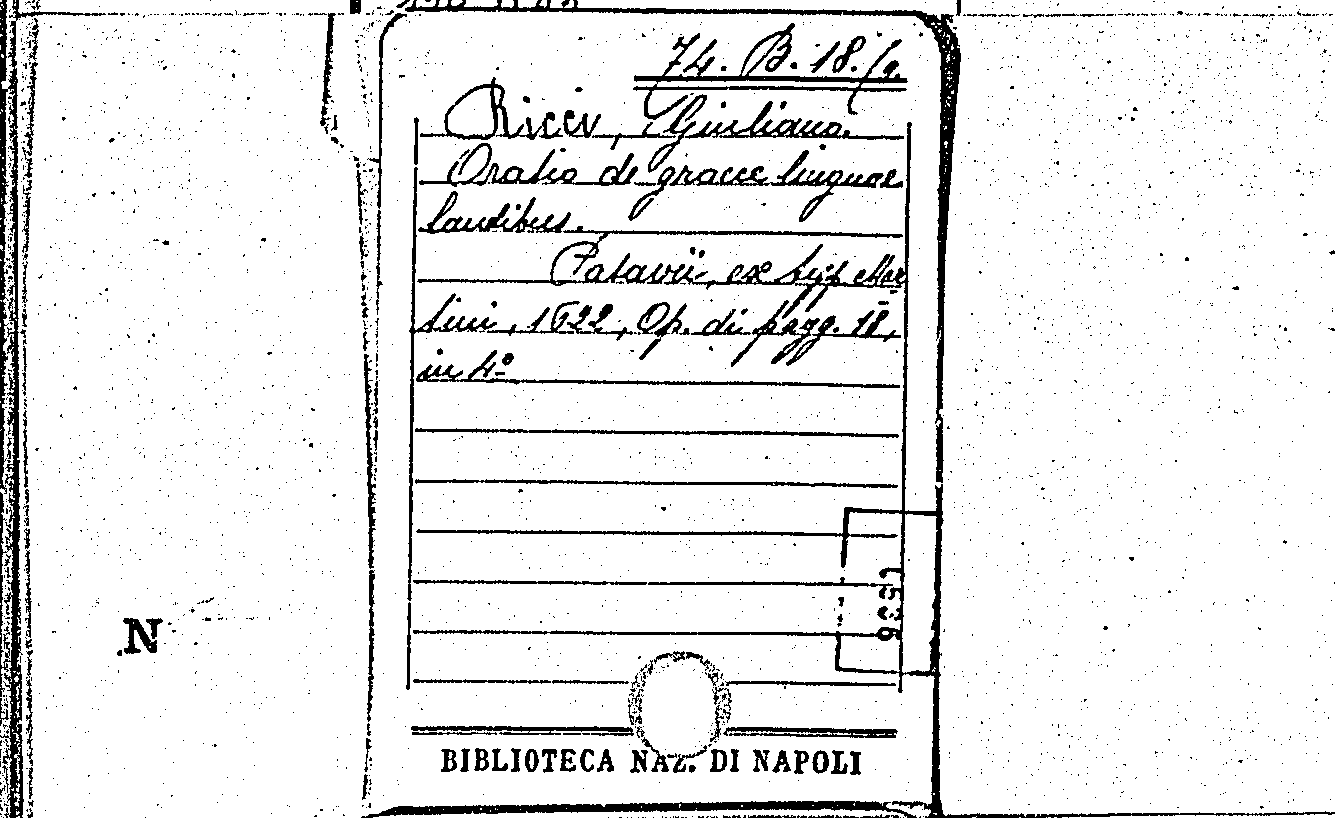 74. B. 18./9.
Ricci, Giuliano.
Oratio de graece linguae
laudibus.
Patavii, ex typ. Mar
tini, 1622, Op. di pagg. 18,
in 4°
N
BIBLIOTECA NAZ. DI NAPOLI